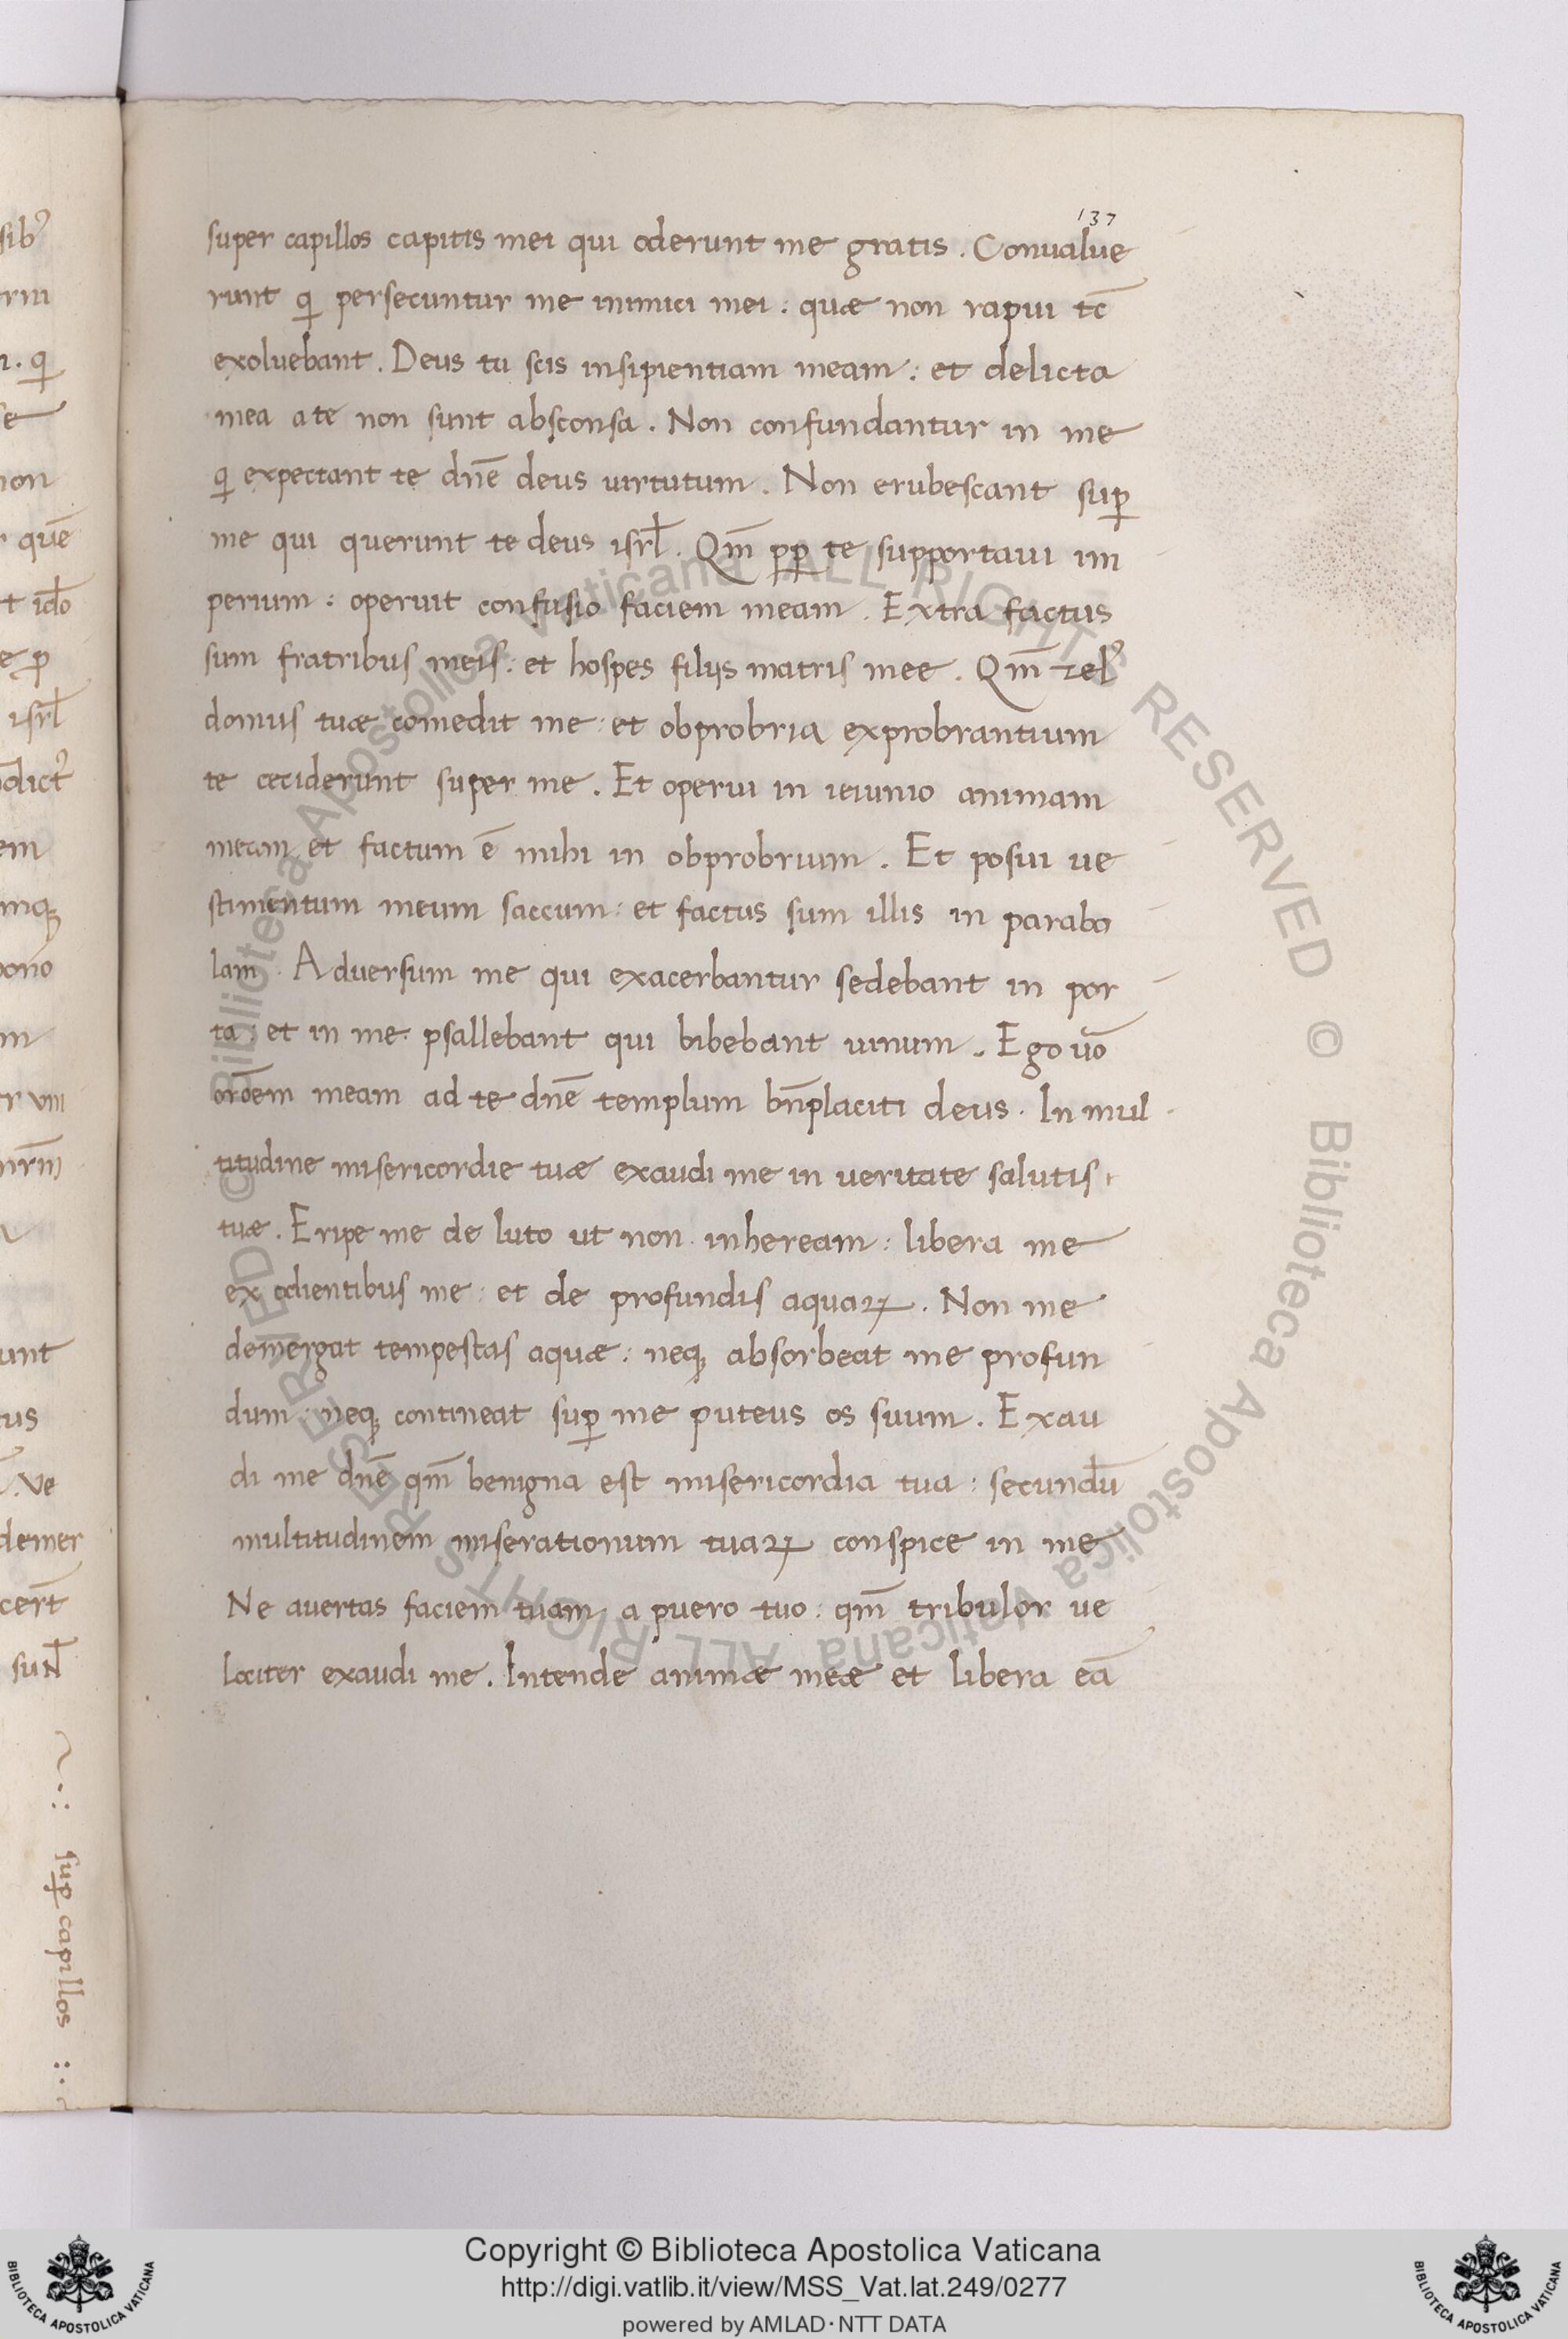 137
super capillos capitis mei qui oderunt me gratis. Conualue
runt q̇ persecuntur me inimici mei: quæ non rapui tc̄
exoluebant. Deus tu scis insipientiam meam: et delicta
mea a te non sunt absconsa. Non confundantur in me
q̇ expectant te dn̄e deus uirtutum. Non erubescant suꝑ
me qui querunt te deus isrl̄. Qm̄ ꝓꝑ te supportaui im
perium: operuit confusio faciem meam. Extra factus
sum fratribus meis: et hospes filijs matris mee. Qm̄ zel᾽
domus tuæ comedit me: et obprobria exprobrantium
te ceciderunt super me. Et operui in ieiunio animam
meam et factum ē mihi in obprobrium. Et posui ue
stimentum meum saccum: et factus sum illis in parabo
lam. Aduersum me qui exacerbantur sedebant in por
ta: et in me psallebant qui bibebant uinum. Ego uō
orōem meam ad te dn̄e templum bn̄placiti deus. In mul
titudine misericordie tuæ exaudi me in ueritate salutis
tuæ. Eripe me de luto ut non inheream: libera me
ex odientibus me: et de profundis aquaꝝ. Non me
demergat tempestas aquæ: neq; absorbeat me profun
dum: neq; contineat suꝑ me puteus os suum. Exau
di me dn̄e qm̄ benigna est misericordia tua: secundū
multitudinem miserationum tuaꝝ conspice in me
Ne auertas faciem tuam a puero tuo: qm̄ tribulor ue
lociter exaudi me. Intende animæ meæ et libera eā
suꝑ capillos
Copyright © Biblioteca Apostolica Vaticana
http://digi.vatlib.it/view/MSS_Vat.lat.249/0277
powered by AMLAD·NTT DATA